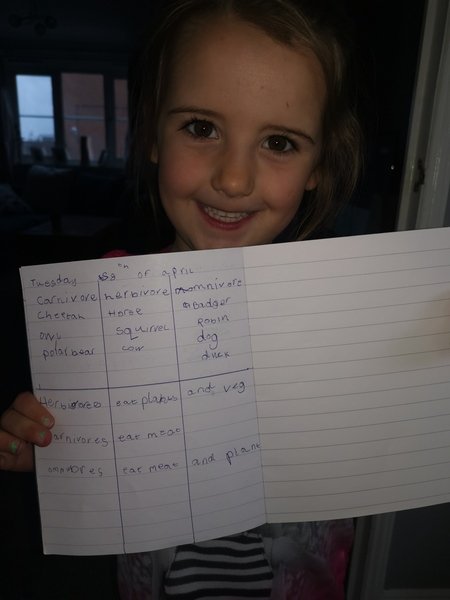 Tuesday 28th of april
Carnivore herbivore omnivore
Cheetah Horse Badger
owl squirrel Robin
polar bear cow dog
duck
Herbivores eat plants and veg
carnivores eat meat
omnivores eat meat and plant